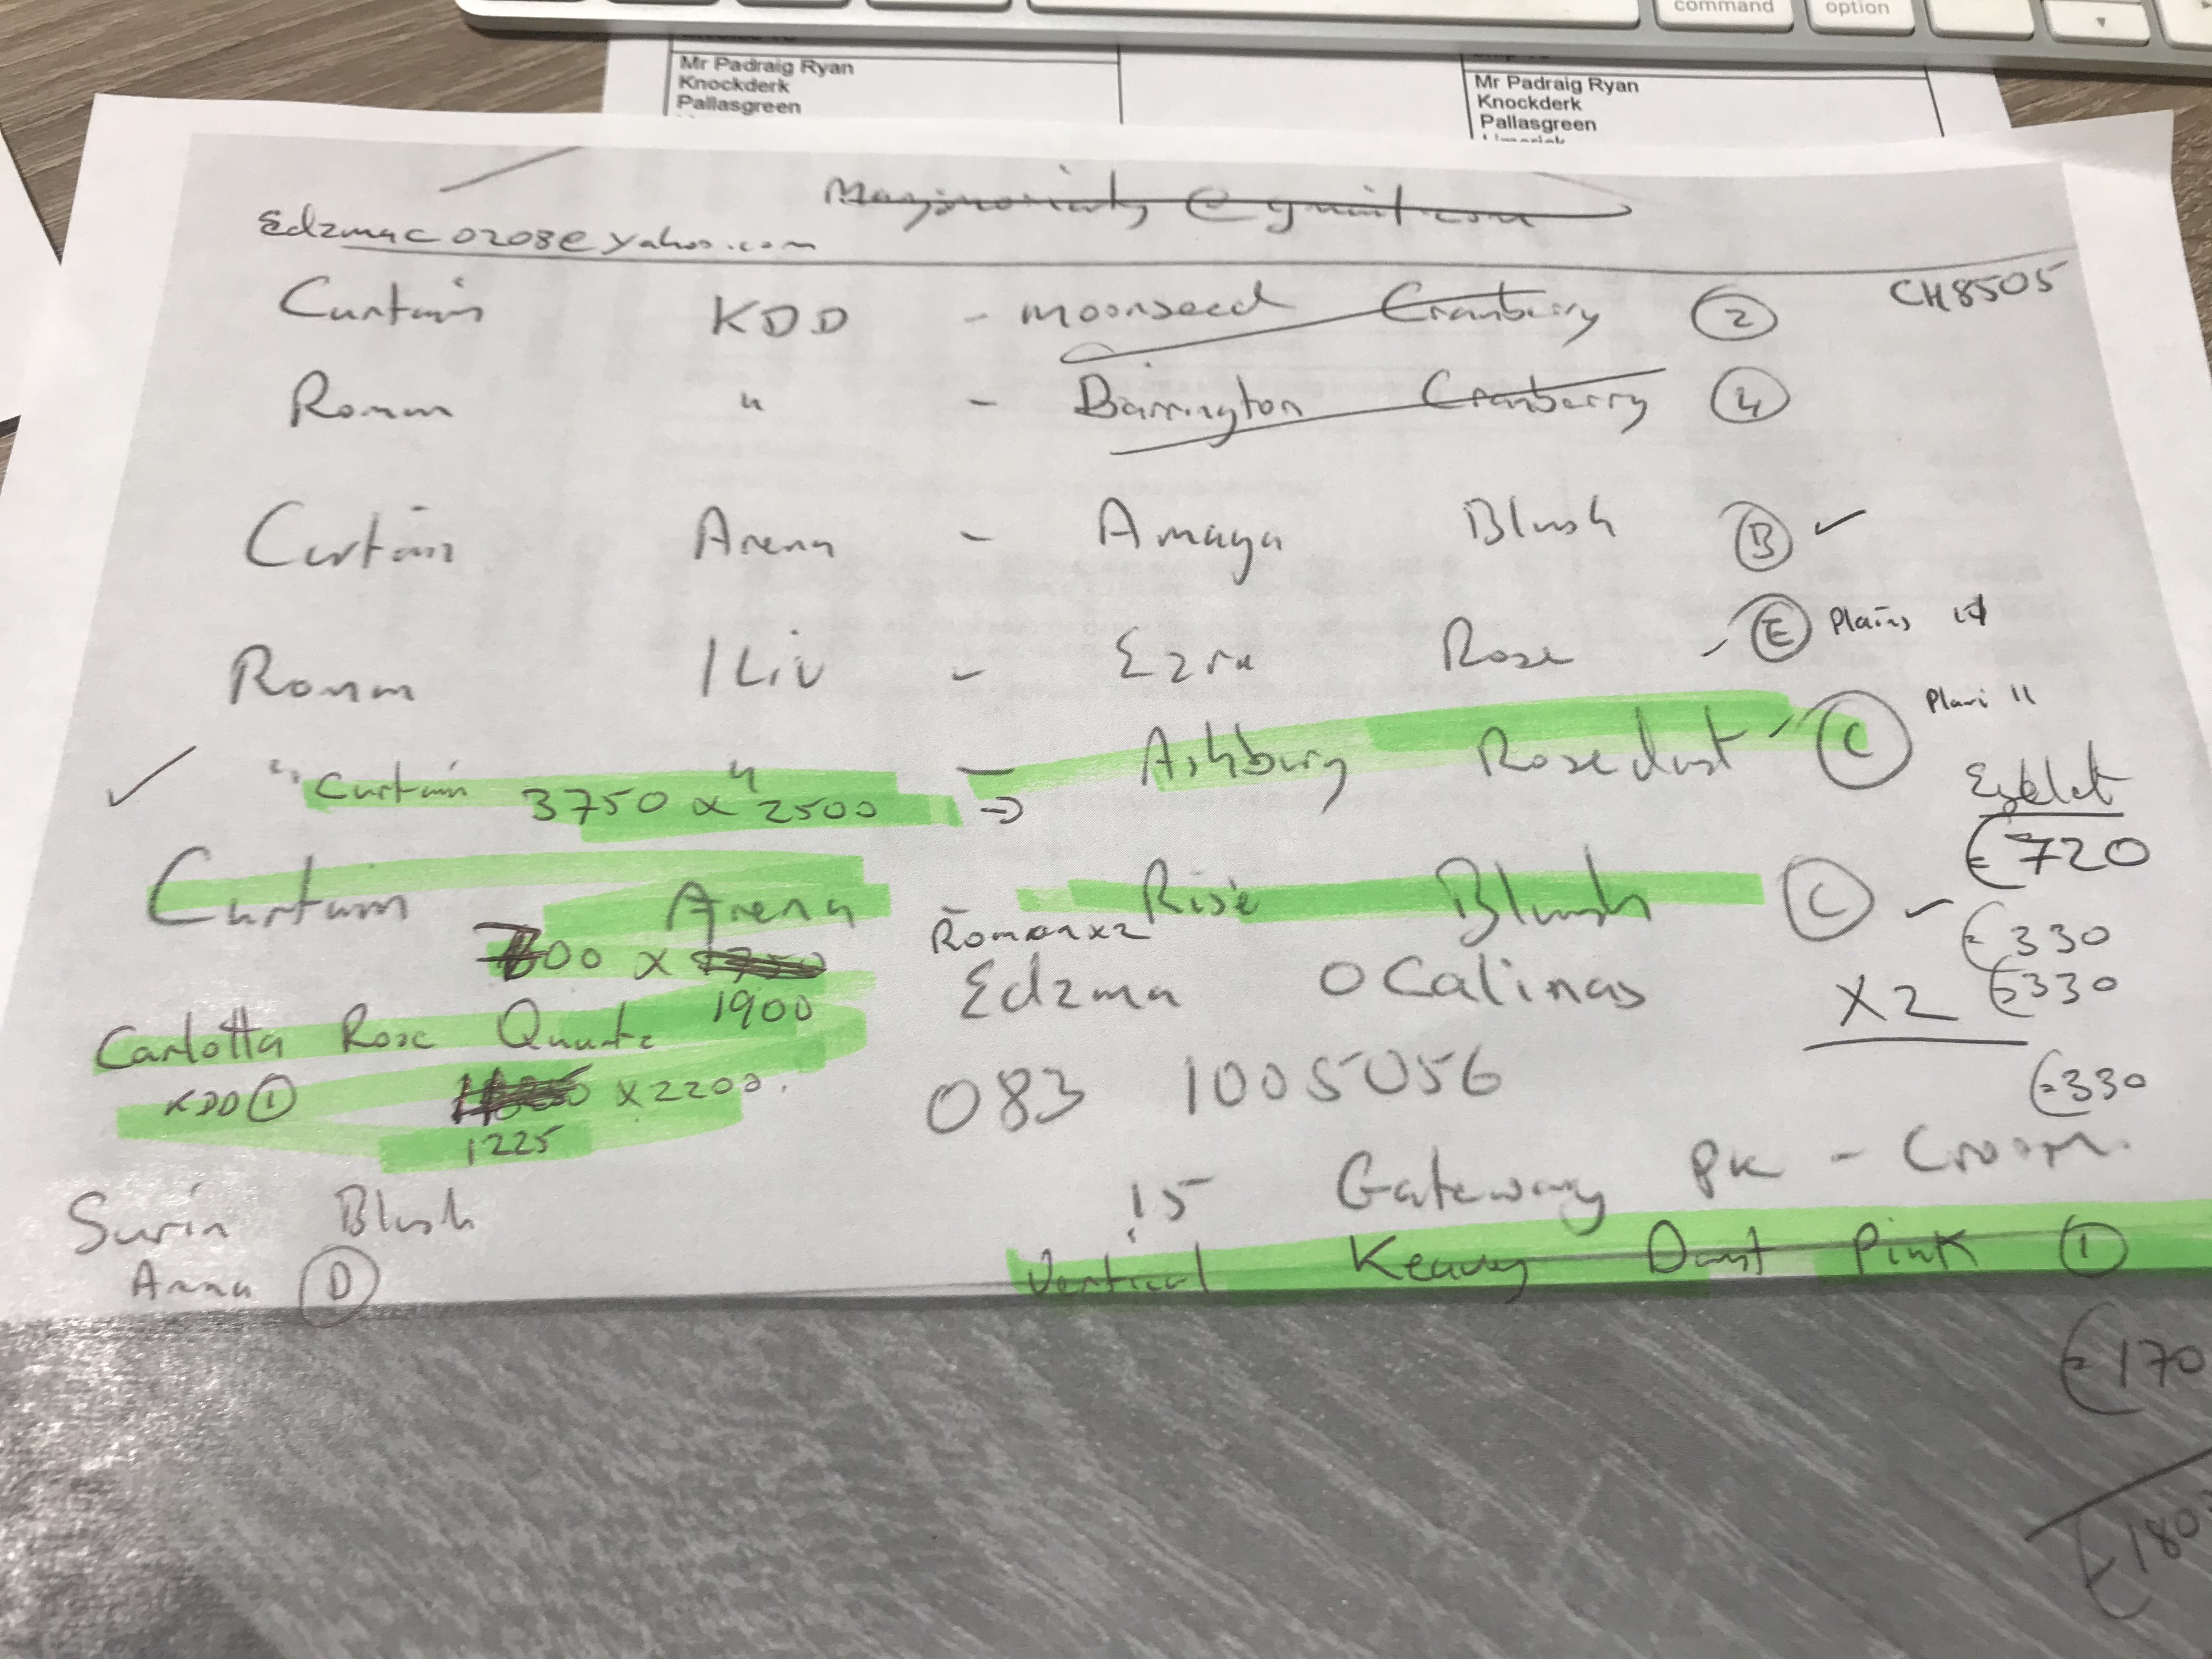 command option
Mr Padraig Ryan
Knockderk
Pallasgreen
Mr Padraig Ryan
Knockderk
Pallasgreen
Limerick
@gmail.com
Edzmac0208@yahoo.com
CH8505
Curtain KDD - moonseed Cranberry 2
Roman " - Barrington Cranberry 4
Curtain Arena - Amaya Blush B ✓
Roman ILIV - Ezra Rose - E Plains
✓ " Curtain " - Ashbury Rosedust - C 11
3750 x 2500 →
Eyelet
€720
Curtain Arena Rise Blush C ✓
00 x 1900
Roman x2
€330
Edzma O Calinas x2 €330
Carlotta Rose Quartz
KDD 1 x 2200.
1225
083 1005056
€330
15 Gateway PK - Croom.
Surin Blush
Vertical Dust Pink 1
D
€170